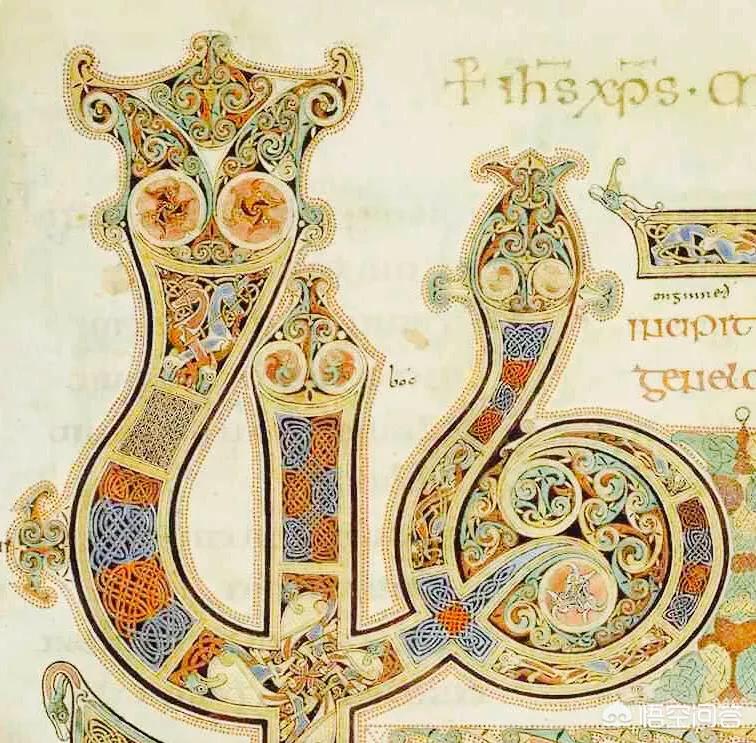 + ihs xps · m
onginneð
incipit
genelo
bóc
Lib
悟空问答